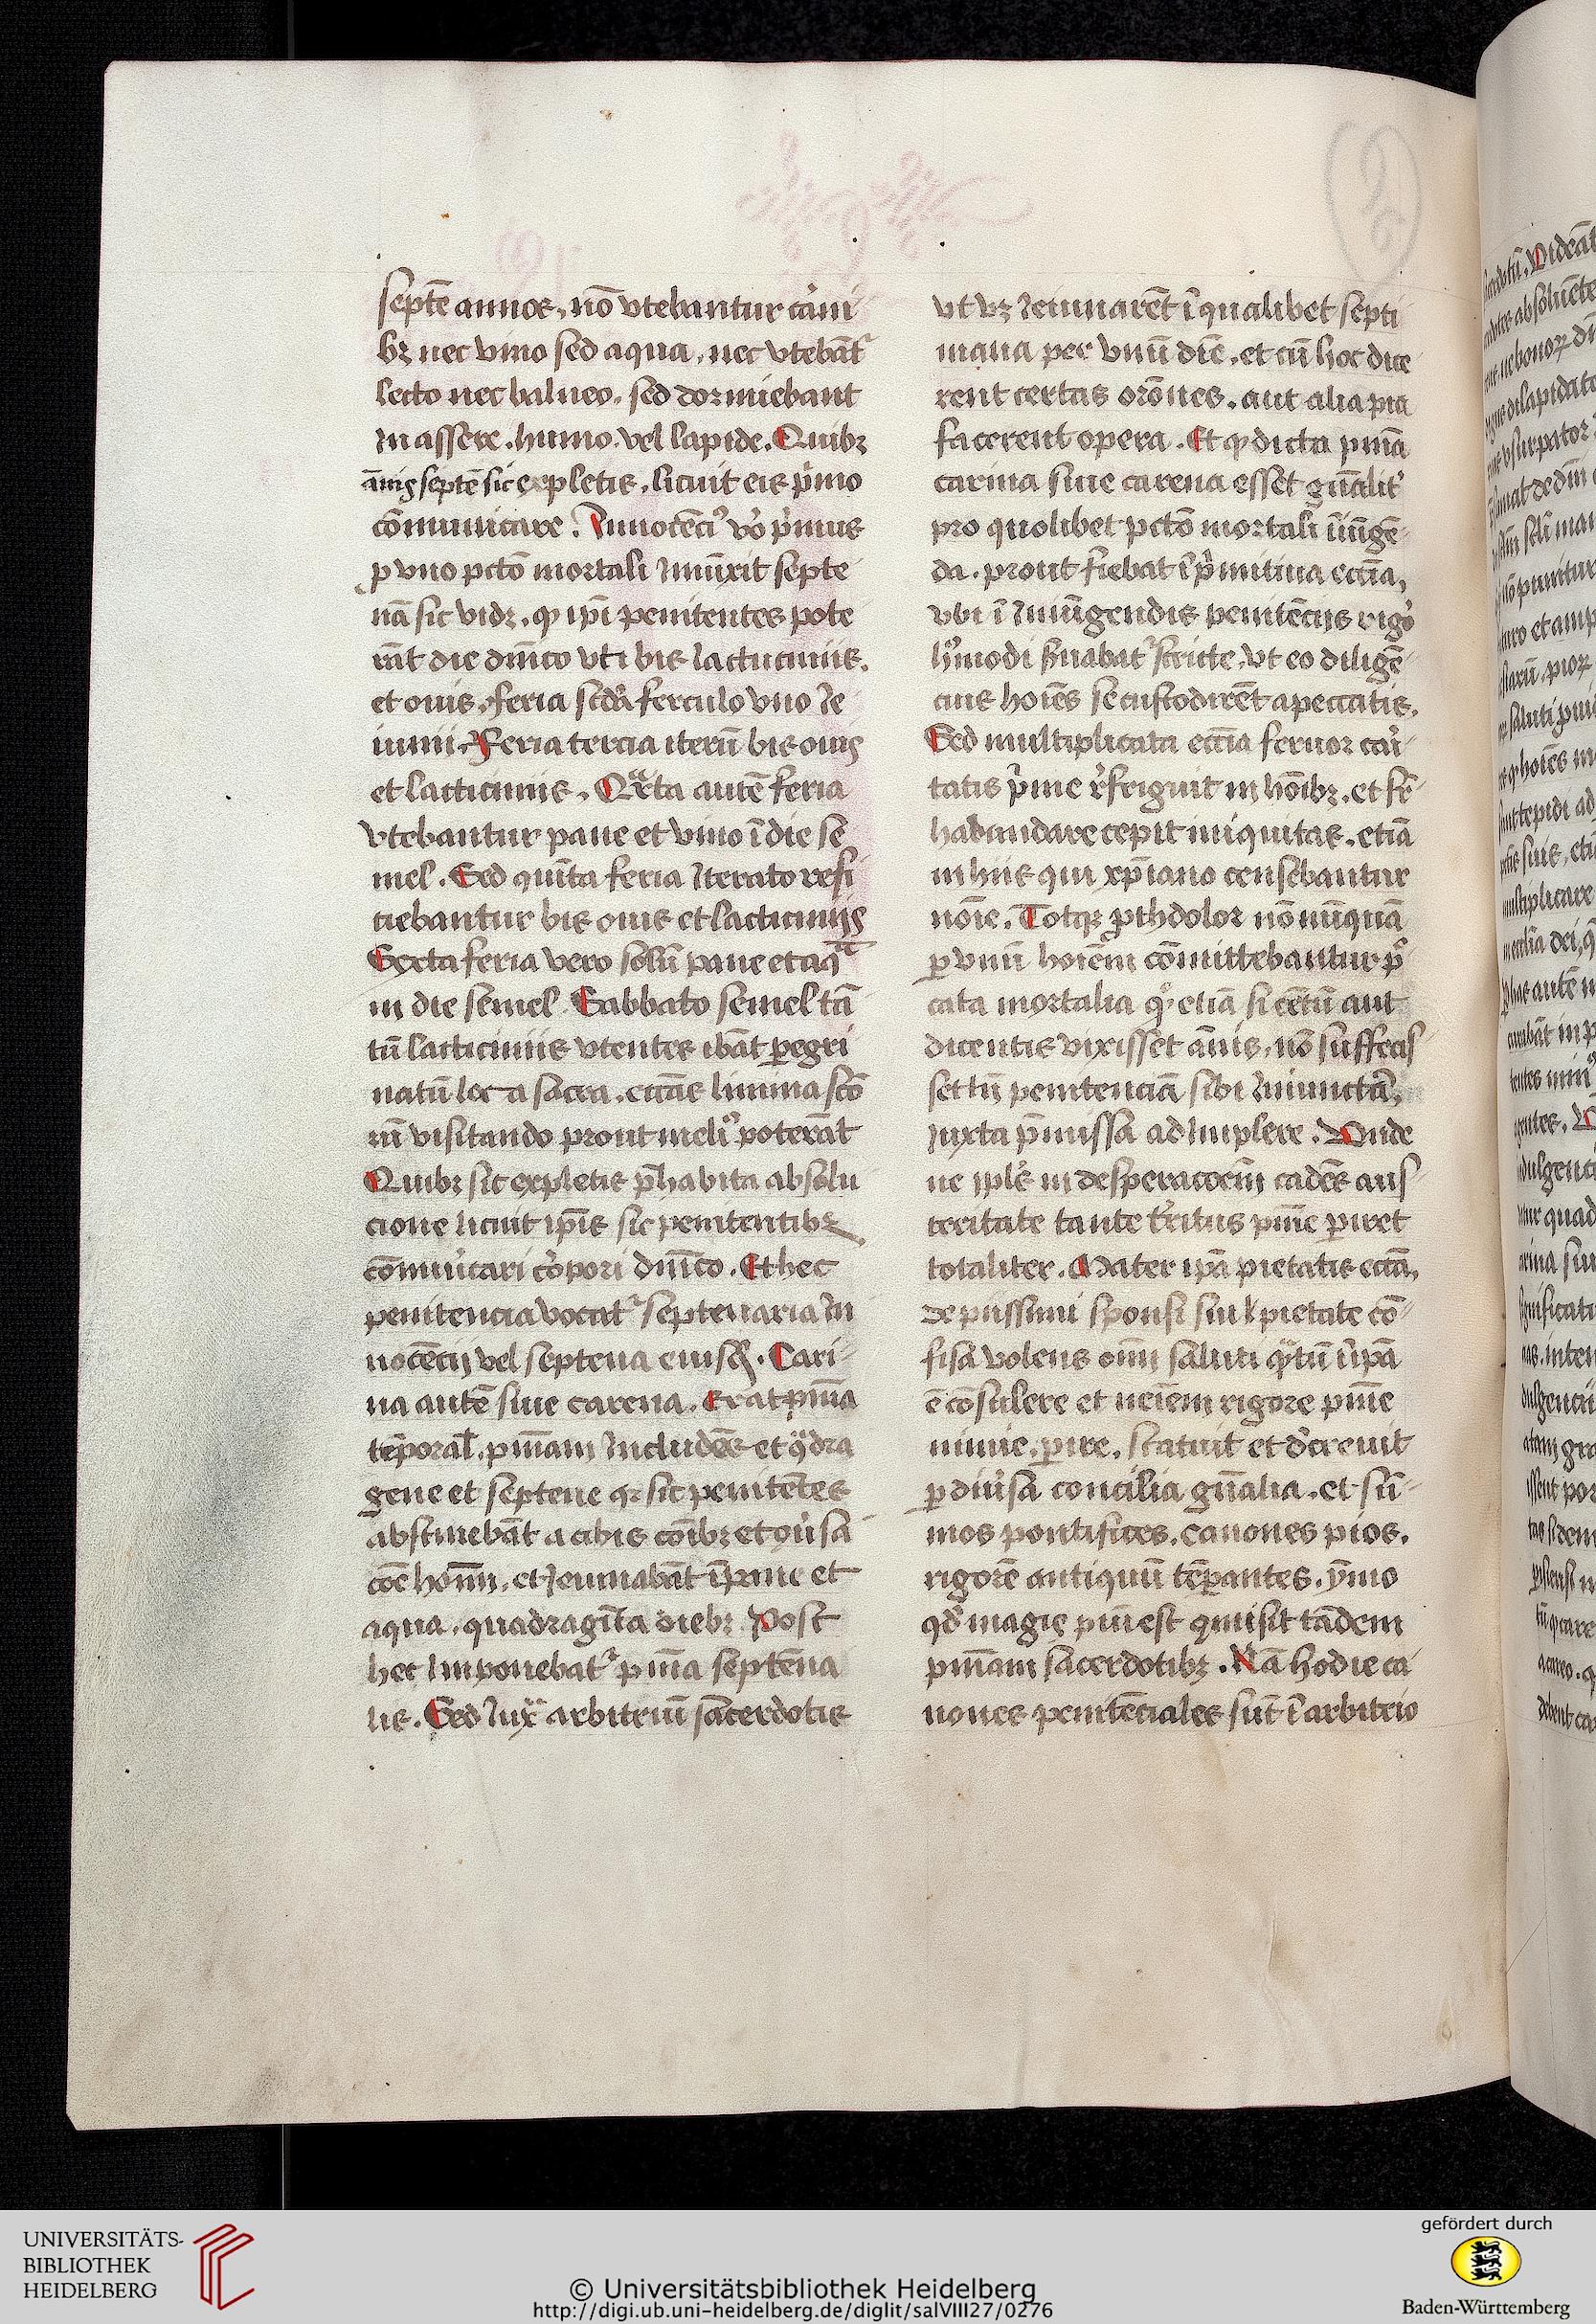 septē annoꝝ, nō vtebantur cᷓrni-
bꝫ nec vino sed aqua, nec vtebāt᷑
lecto nec balneo, sed dormiebant
in assere, humo, vel lapide. Quibꝫ
ānis septē sic expletis, licuit eis pⁱmo
cōmunicare. Innocēciꝰ vᵒ pⁱmus
p vno pctō mortali iniūxit septe
nā sic vidꝫ, ꝙ ip̄i penitentes pote
rāt die dn̄ico vti bis lacticiniis,
et ouis, feria scd̓a ferculo vno Ie
iunii. Feria tercia iterū bis ouis
et lacticiniis. Qᷓrta autē feria
vtebantur pane et vino ī die se
mel. Sed quīta feria iterato refi
ciebantur bis ouis et lacticiniis
Sexta feria vero solū pane et aqᷓ
in die semel. Sabbato semel tā
tū lacticiniis vtentes ibāt ꝑegri
natū loca sacra, eccīas limina scō
rū visitando prout meliꝰ poterāt
Quibꝫ sic expletis p̄habita absolu
cione licuit ip̄is sic penitentibꝫ
cōmuīcari cᵒpori dn̄ico. Et hec
penitencia vocat᷑ septenaria In
nocēcij vel septena eiusd̓. Cari-
na autē siue carena. Erat pn̄ia
tēporal̓, pn̄iam includēs et qᷓdra
gene et septene qꝛ sic penitētes
abstinebāt a cibis cōibꝫ et
hōīm, et Ieiunabāt ī pane et
aqua, quadragīta diebꝫ. Post
hec imponebat᷑ pn̄ia septēna
lis. Sed iuxᷓ arbitriū sacerdotis
vt vꝫ Ieiunarēt ī qualibet septi
mana per vnū diē, et cū hoc dice
rent certas orōnes, aut alia pia
facerent opera. Et ꝙ dicta pn̄ia
carina siue carena esset gn̄alit̓
pro quolibet pctō mortali iniūgē-
da, prout fiebat ī pⁱmitiua eccīa,
vbi ī iniūgendis penitēcijs rigᵒ
hꝰmodi ẜuabat᷑ stricte, vt eo diligē-
cius hoīēs se custodirēt a peccatis.
Sed multiplicata eccīa feruor cari-
tatis pⁱme rᷓfriguit in hoībꝫ, et
habundare cepit iniquitas, etiā
in hiis qui xp̄iano censebantur
noīe. Totqꝫ pͭhdolor nōnūquā
ꝑ vnū hoīēm cōmittebantur pᷓ
cata mortalia qᵒ etiā si cētū aut
ducentis vixisset ānis, nō suffecis-
set tn̄ penitenciā sibi iniunctā,
iuxta p̄missa adimplere. Vnde
ne ip̄e in desperacōēm cadēs aus-
teritate tante pn̄ie ꝑiret
totaliter. Mater ipā pietatis eccīa,
de piissimi sponsi sui pietate cō-
fisa volens om̄i saluti qᷓtū ī ipā
ē cōsulere et neiēm rigore pn̄ie
nimie ꝑire, statuit et dᷓcreuit
ꝑ diuᷓsa concilia gn̄alia, et sū-
mos pontifices, canones pios,
rigorē antiquū tēꝑantes, ymo
qd̓ magis piū est ꝙmisit tādem
pn̄iam sacerdotibꝫ. Nā hodie ca
nones penitēciales sūt ī arbitrio
UNIVERSITÄTS-
BIBLIOTHEK
HEIDELBERG
© Universitätsbibliothek Heidelberg
http://digi.ub.uni-heidelberg.de/diglit/salVIII27/0276
gefördert durch
Baden-Württemberg